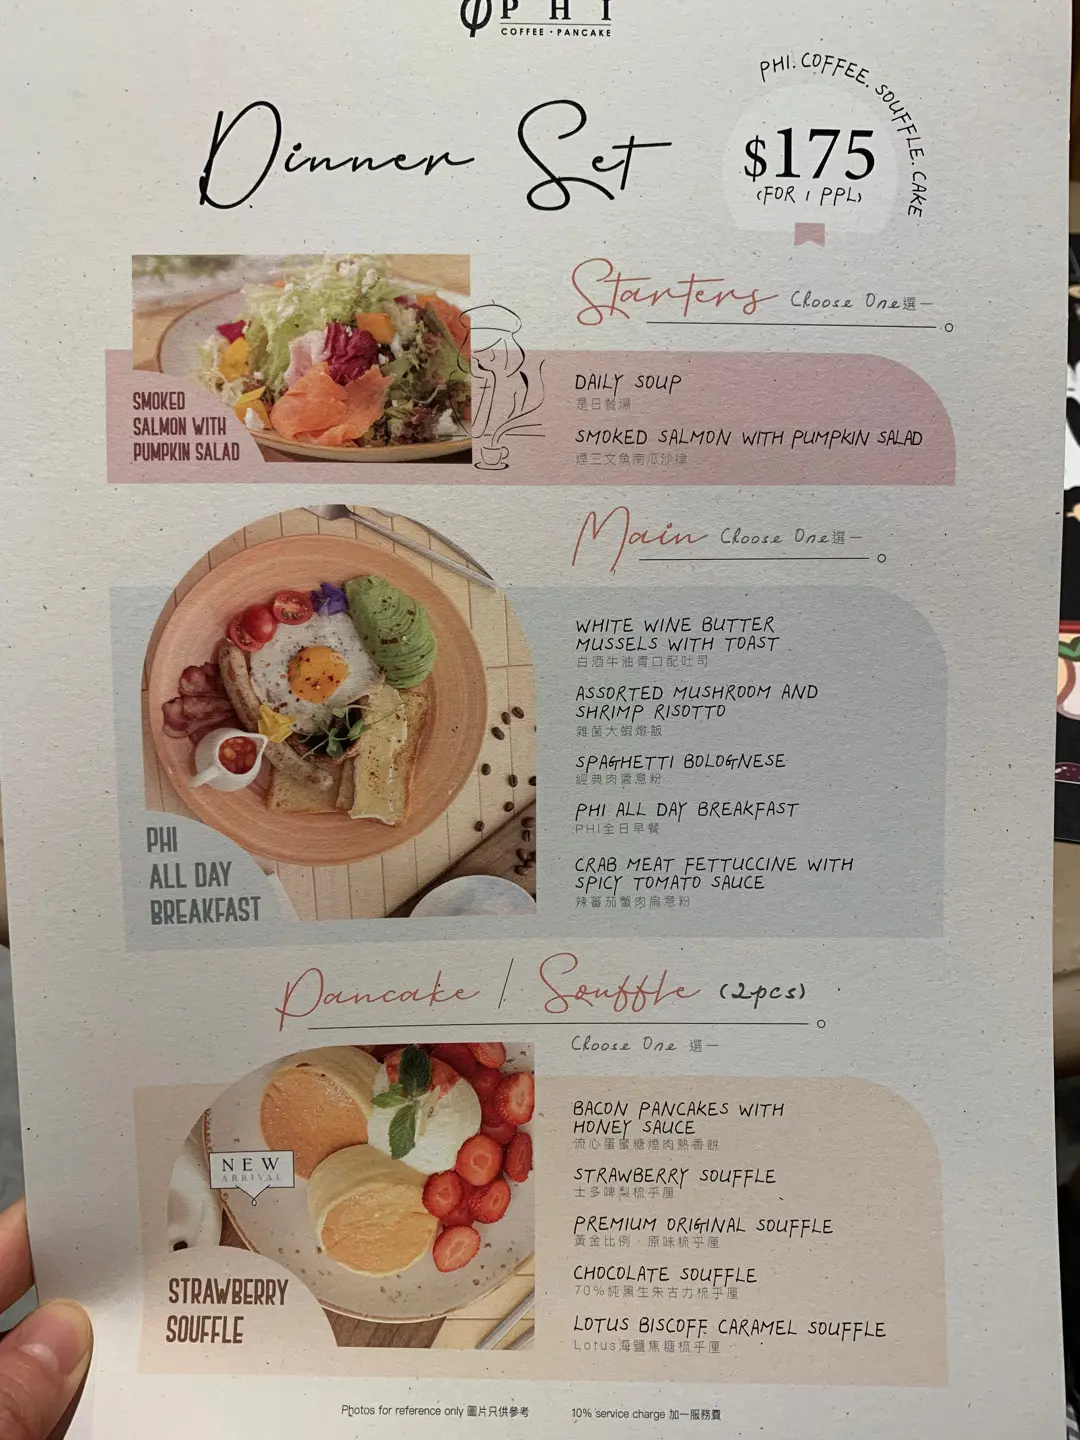 PHI
COFFEE · PANCAKE
PHI. COFFEE. SOUFFLE. CAKE
Dinner Set
$175
(FOR 1 PPL)
Starters Choose One選一
SMOKED
SALMON WITH
PUMPKIN SALAD
DAILY SOUP
是日餐湯
SMOKED SALMON WITH PUMPKIN SALAD
煙三文魚南瓜沙律
Main Choose One選一
WHITE WINE BUTTER
MUSSELS WITH TOAST
白酒牛油青口配吐司
ASSORTED MUSHROOM AND
SHRIMP RISOTTO
雜菌大蝦燉飯
SPAGHETTI BOLOGNESE
經典肉醬意粉
PHI ALL DAY BREAKFAST
PHI全日早餐
CRAB MEAT FETTUCCINE WITH
SPICY TOMATO SAUCE
辣蕃茄蟹肉扁意粉
PHI
ALL DAY
BREAKFAST
Pancake / Souffle (2pcs)
Choose One 選一
BACON PANCAKES WITH
HONEY SAUCE
流心蛋蜜糖煙肉熱香餅
STRAWBERRY SOUFFLE
士多啤梨梳乎厘
PREMIUM ORIGINAL SOUFFLE
黃金比例 · 原味梳乎厘
CHOCOLATE SOUFFLE
70%純黑生朱古力梳乎厘
LOTUS BISCOFF CARAMEL SOUFFLE
Lotus海鹽焦糖梳乎厘
NEW
ARRIVAL
STRAWBERRY
SOUFFLE
Photos for reference only 圖片只供參考
10% service charge 加一服務費